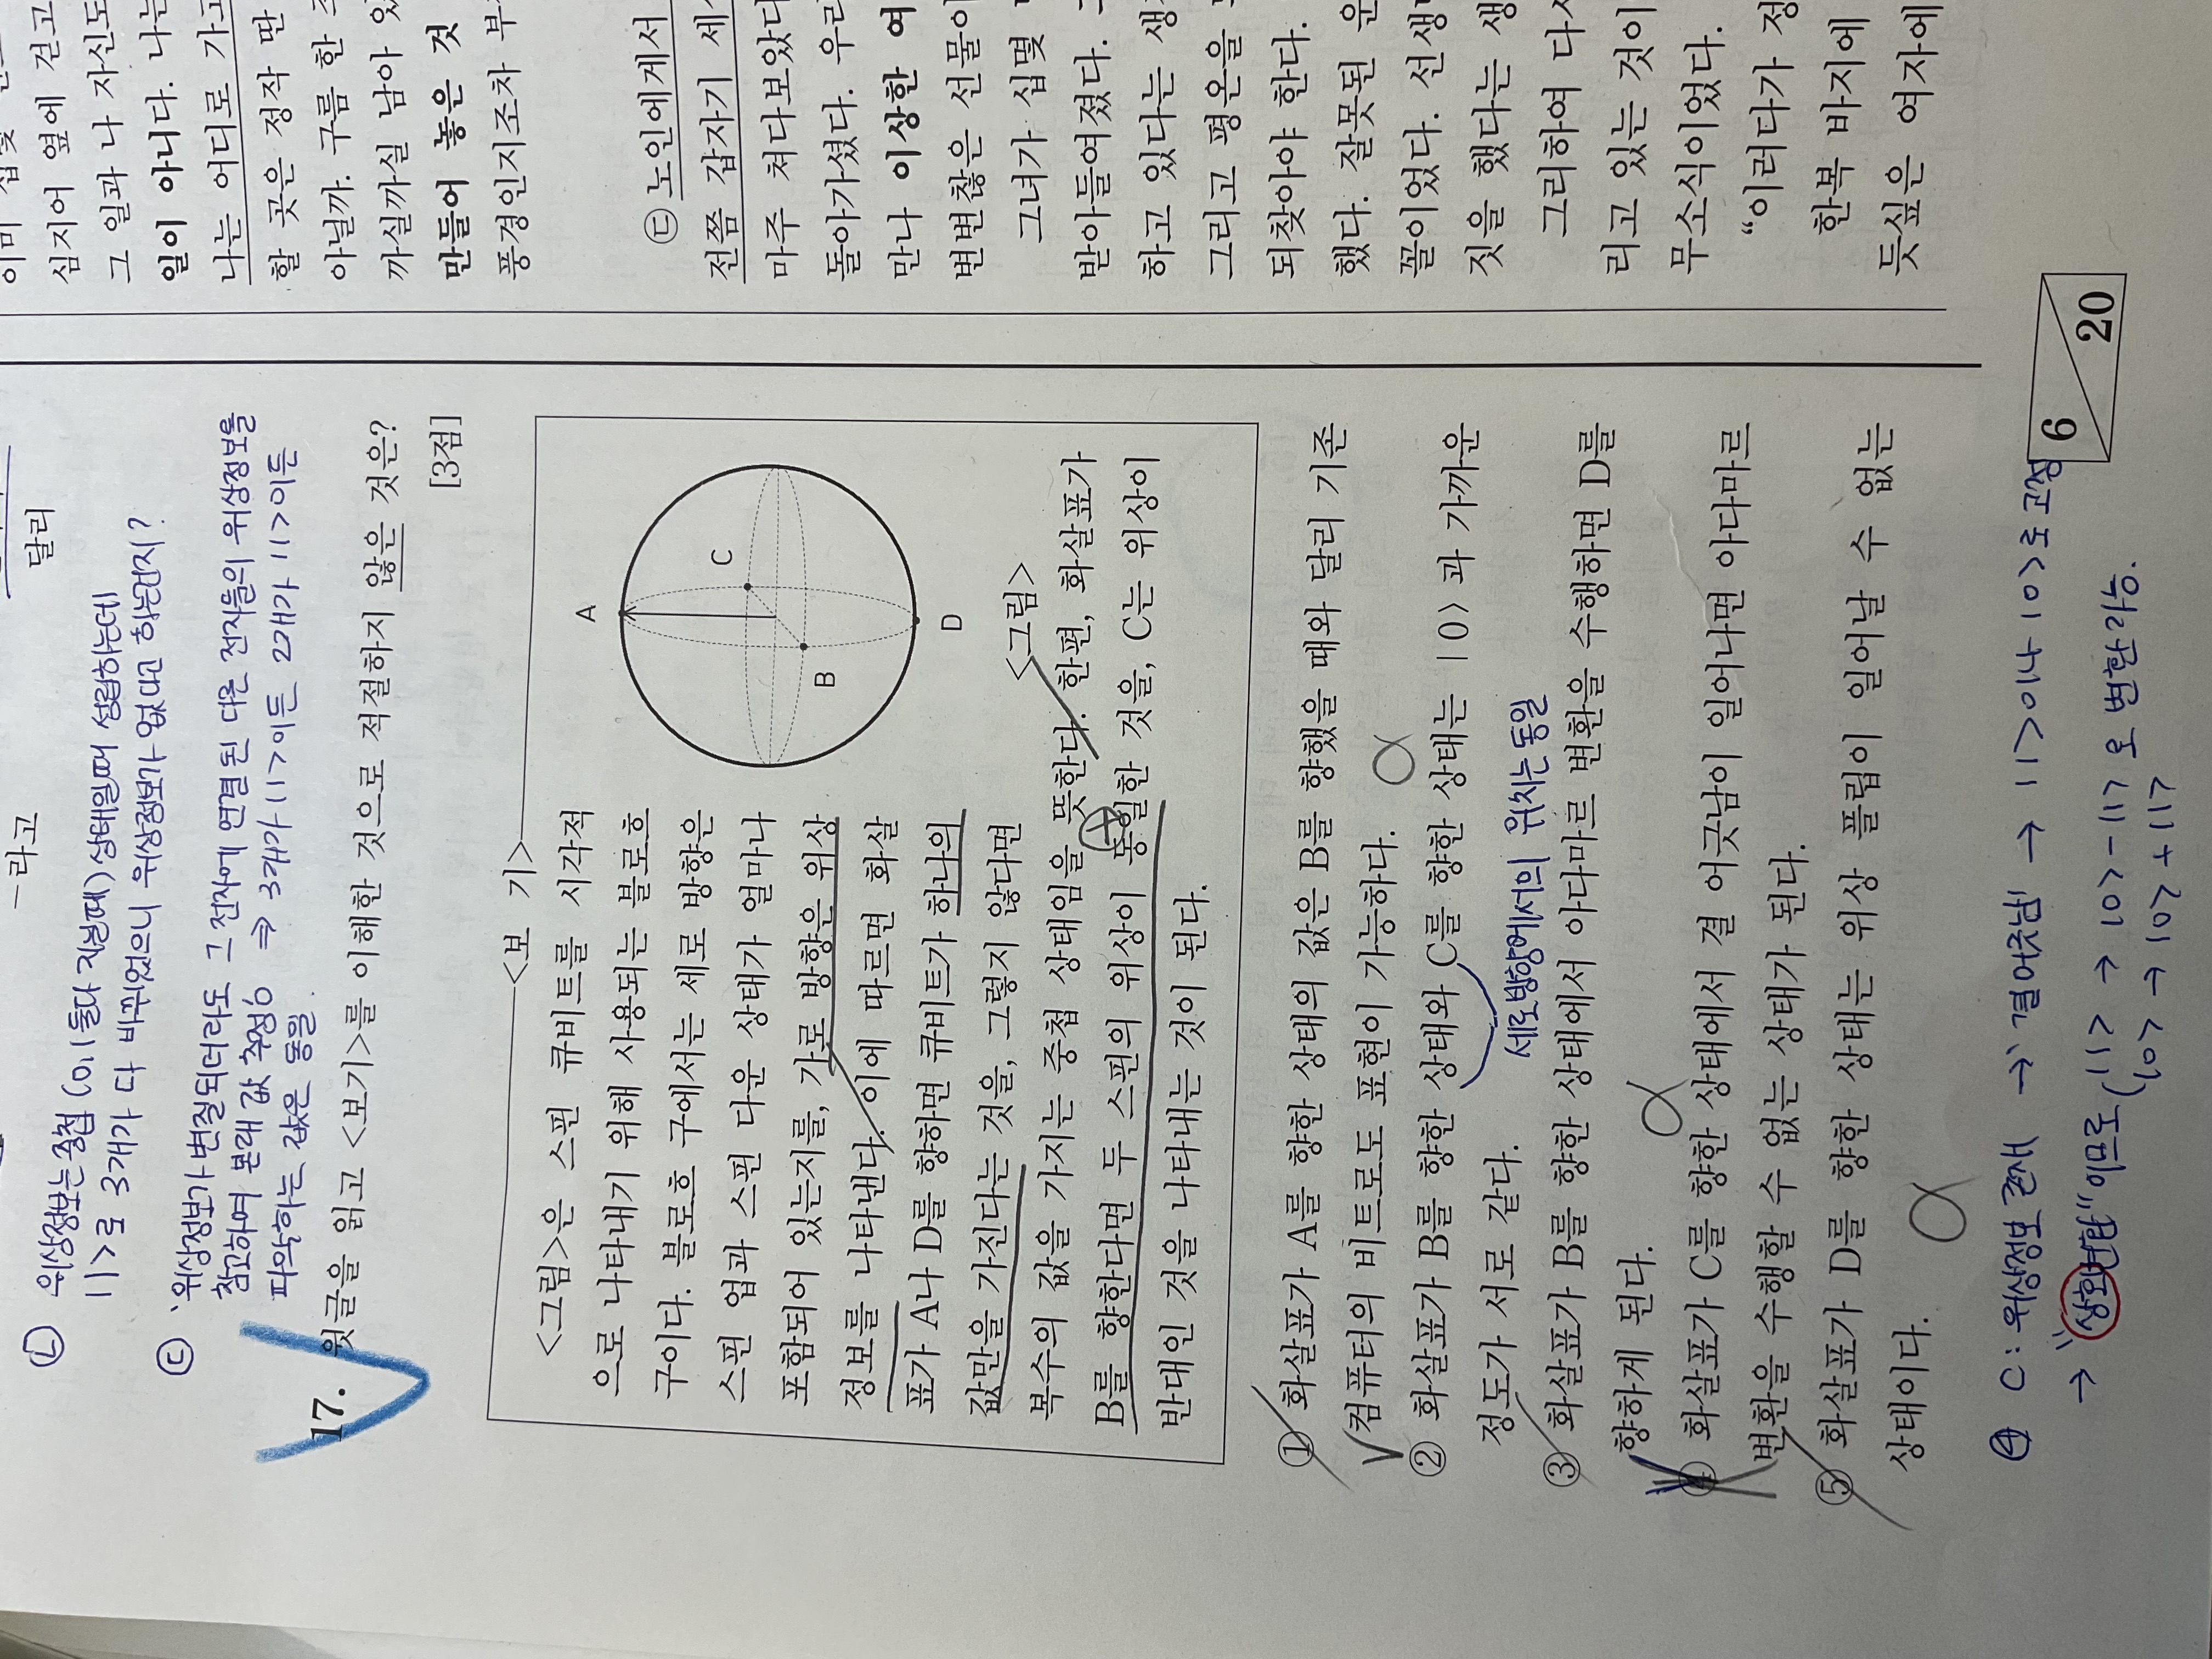 －라고
달리
Ⓛ 위상정보는 중첩 (0,1 둘다 가질때) 상태일때 성립하는데
|1>로 3개가 다 바뀌었으니 위상정보가 없다고 하는건지?
ⓒ 위상정보가 변질되더라도 그 전자에 연결된 다른 전자들의 위상정보를
참고하여 본래 값 추정 ⇒ 3개가 |1>이든 2개가 |1>이든
파악하는 값은 동일.
17. 윗글을 읽고 <보기>를 이해한 것으로 적절하지 않은 것은?
[3점]
<보 기>
<그림>은 스핀 큐비트를 시각적
으로 나타내기 위해 사용되는 블로흐
구이다. 블로흐 구에서는 세로 방향은
스핀 업과 스핀 다운 상태가 얼마나
포함되어 있는지를, 가로 방향은 위상
정보를 나타낸다. 이에 따르면 화살
표가 A나 D를 향하면 큐비트가 하나의
값만을 가진다는 것을, 그렇지 않다면
복수의 값을 가지는 중첩 상태임을 뜻한다. 한편, 화살표가
B를 향한다면 두 스핀의 위상이 동일한 것을, C는 위상이
반대인 것을 나타내는 것이 된다.
A
C
B
D
<그림>
① 화살표가 A를 향한 상태의 값은 B를 향했을 때와 달리 기존
컴퓨터의 비트로도 표현이 가능하다.
② 화살표가 B를 향한 상태와 C를 향한 상태는 |0〉과 가까운
정도가 서로 같다.
세로방향에서의 위치는 동일
③ 화살표가 B를 향한 상태에서 아다마르 변환을 수행하면 D를
향하게 된다.
④ 화살표가 C를 향한 상태에서 결 어긋남이 일어나면 아다마르
변환을 수행할 수 없는 상태가 된다.
⑤ 화살표가 D를 향한 상태는 위상 플립이 일어날 수 없는
상태이다.
④ C: 위상정보 존재 → 결어긋남 → |1>이나 |0>로 고정
→ "상호변환"이므로 ( |1> → |0>-|1> 으로 변환가능.
|0> → |0>+|1>
6
20
이미
심지어 옆에 걷고
그 일과 나 자신도
일이 아니다. 나는
나는 어디로 가고
할 곳은 정작 딴
아닐까. 구름 한
까실까실 남아 있
만들어 놓은 것
풍경인지조차 부
㉢ 노인에게서
전쯤 갑자기 세
마주 쳐다보았다
돌아가셨다. 우리
만나 이상한 여
변변찮은 선물이
그녀가 십몇
받아들여졌다.
하고 있다는 생
그리고 평온을
되찾아야 한다.
했다. 잘못된 운
꼴이었다. 선생
짓을 했다는 생
그리하여 다시
리고 있는 것이
무소식이었다.
“이러다가 정
한복 바지에
듯싶은 여자에